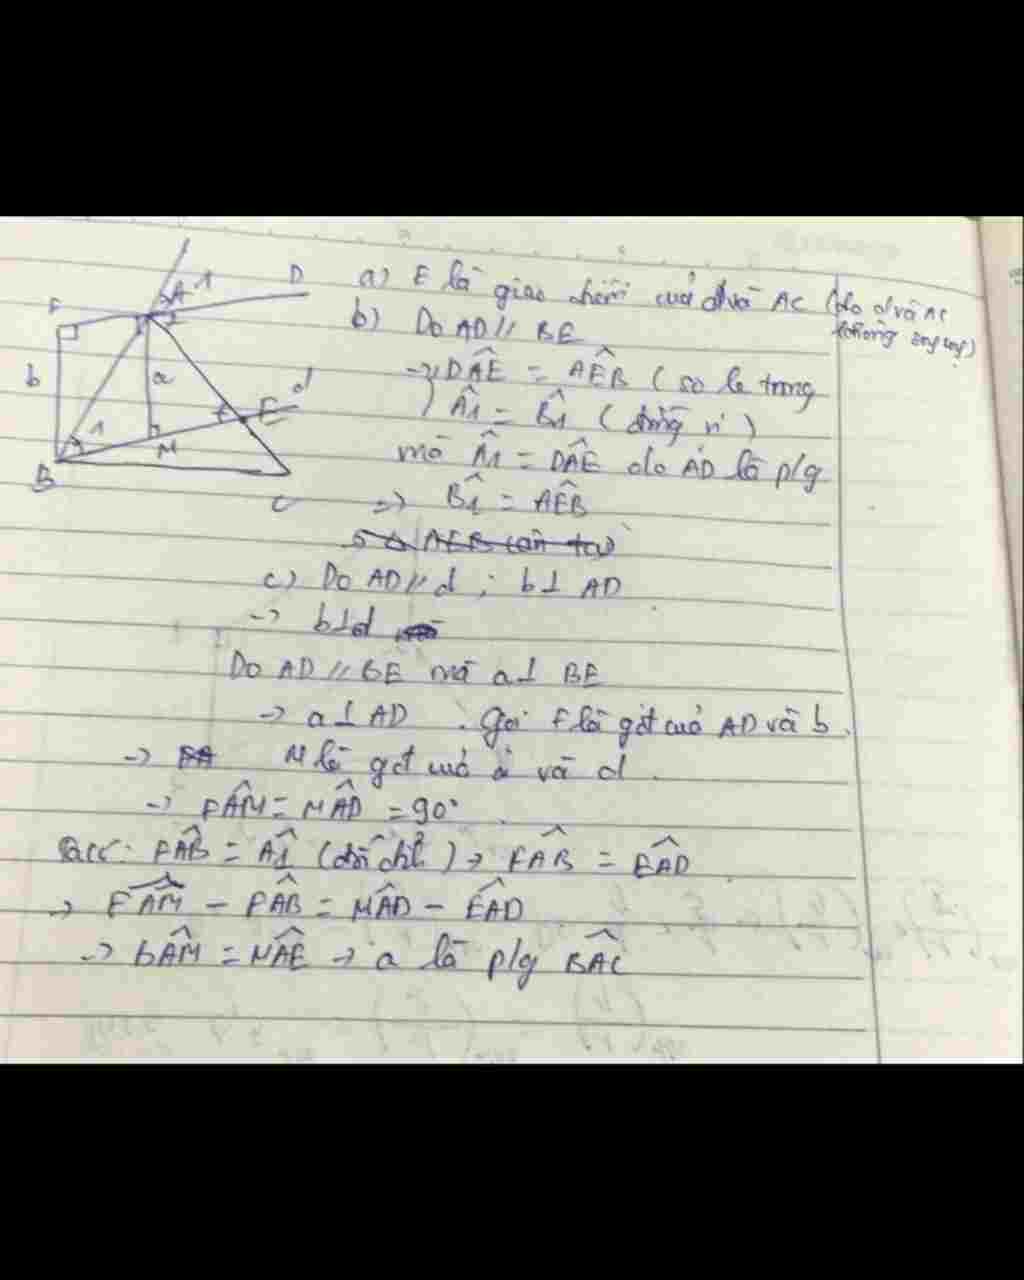 A 1
D
F
b
a
d
1
M
E
B
C
a) E là giao điểm của d và AC (do d và AC không song song)
b) Do AD // BE
→ DÂE = AÊB (so le trong
Â1 = B̂1 (đồng vị)
mà Â1 = DÂE do AD là p/g
=> B̂1 = AÊB
c) Do AD // d ; b ⊥ AD
→ b ⊥ d
Do AD // BE mà a ⊥ BE
→ a ⊥ AD . Gọi F là gđ của AD và b .
→ M là gđ của a và d .
→ FÂM = MÂD = 90° .
FÂB = Â1 (đối đỉnh) → FÂB = EÂD
→ FÂM - FÂB = MÂD - EÂD
→ BÂM = MÂE → a là p/g BÂC